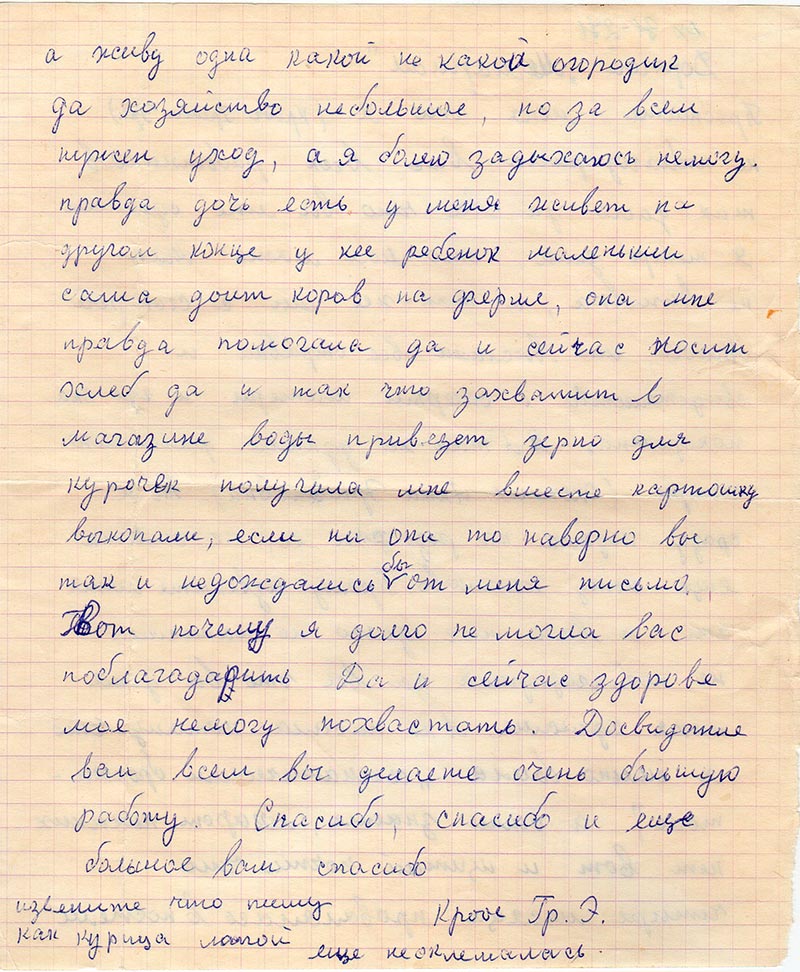 а живу одна какой не какой огородик
да хозяйство небольшое, но за всем
нужен уход, а я болею задыхаюсь немогу.
правда дочь есть у меня живет на
другом конце у нее ребенок маленький
сама доит коров на ферме, она мне
правда помогала да и сейчас носит
хлеб да и так что захватит в
магазине воды привезет зерно для
курочек получила мне вместе картошку
выкопали, если ни она то наверно вы
так и недождались бы от меня письма,
Вот почему я долго не могла вас
поблагадарить Да и сейчас здоровя
мое немогу похвастать. Досвидание
вам всем вы делаете очень большую
работу. Спасибо, спасибо и еще
большое вам спасибо
извените что пишу
как курица лапой
Гр. Э.
еще неоклемалась.